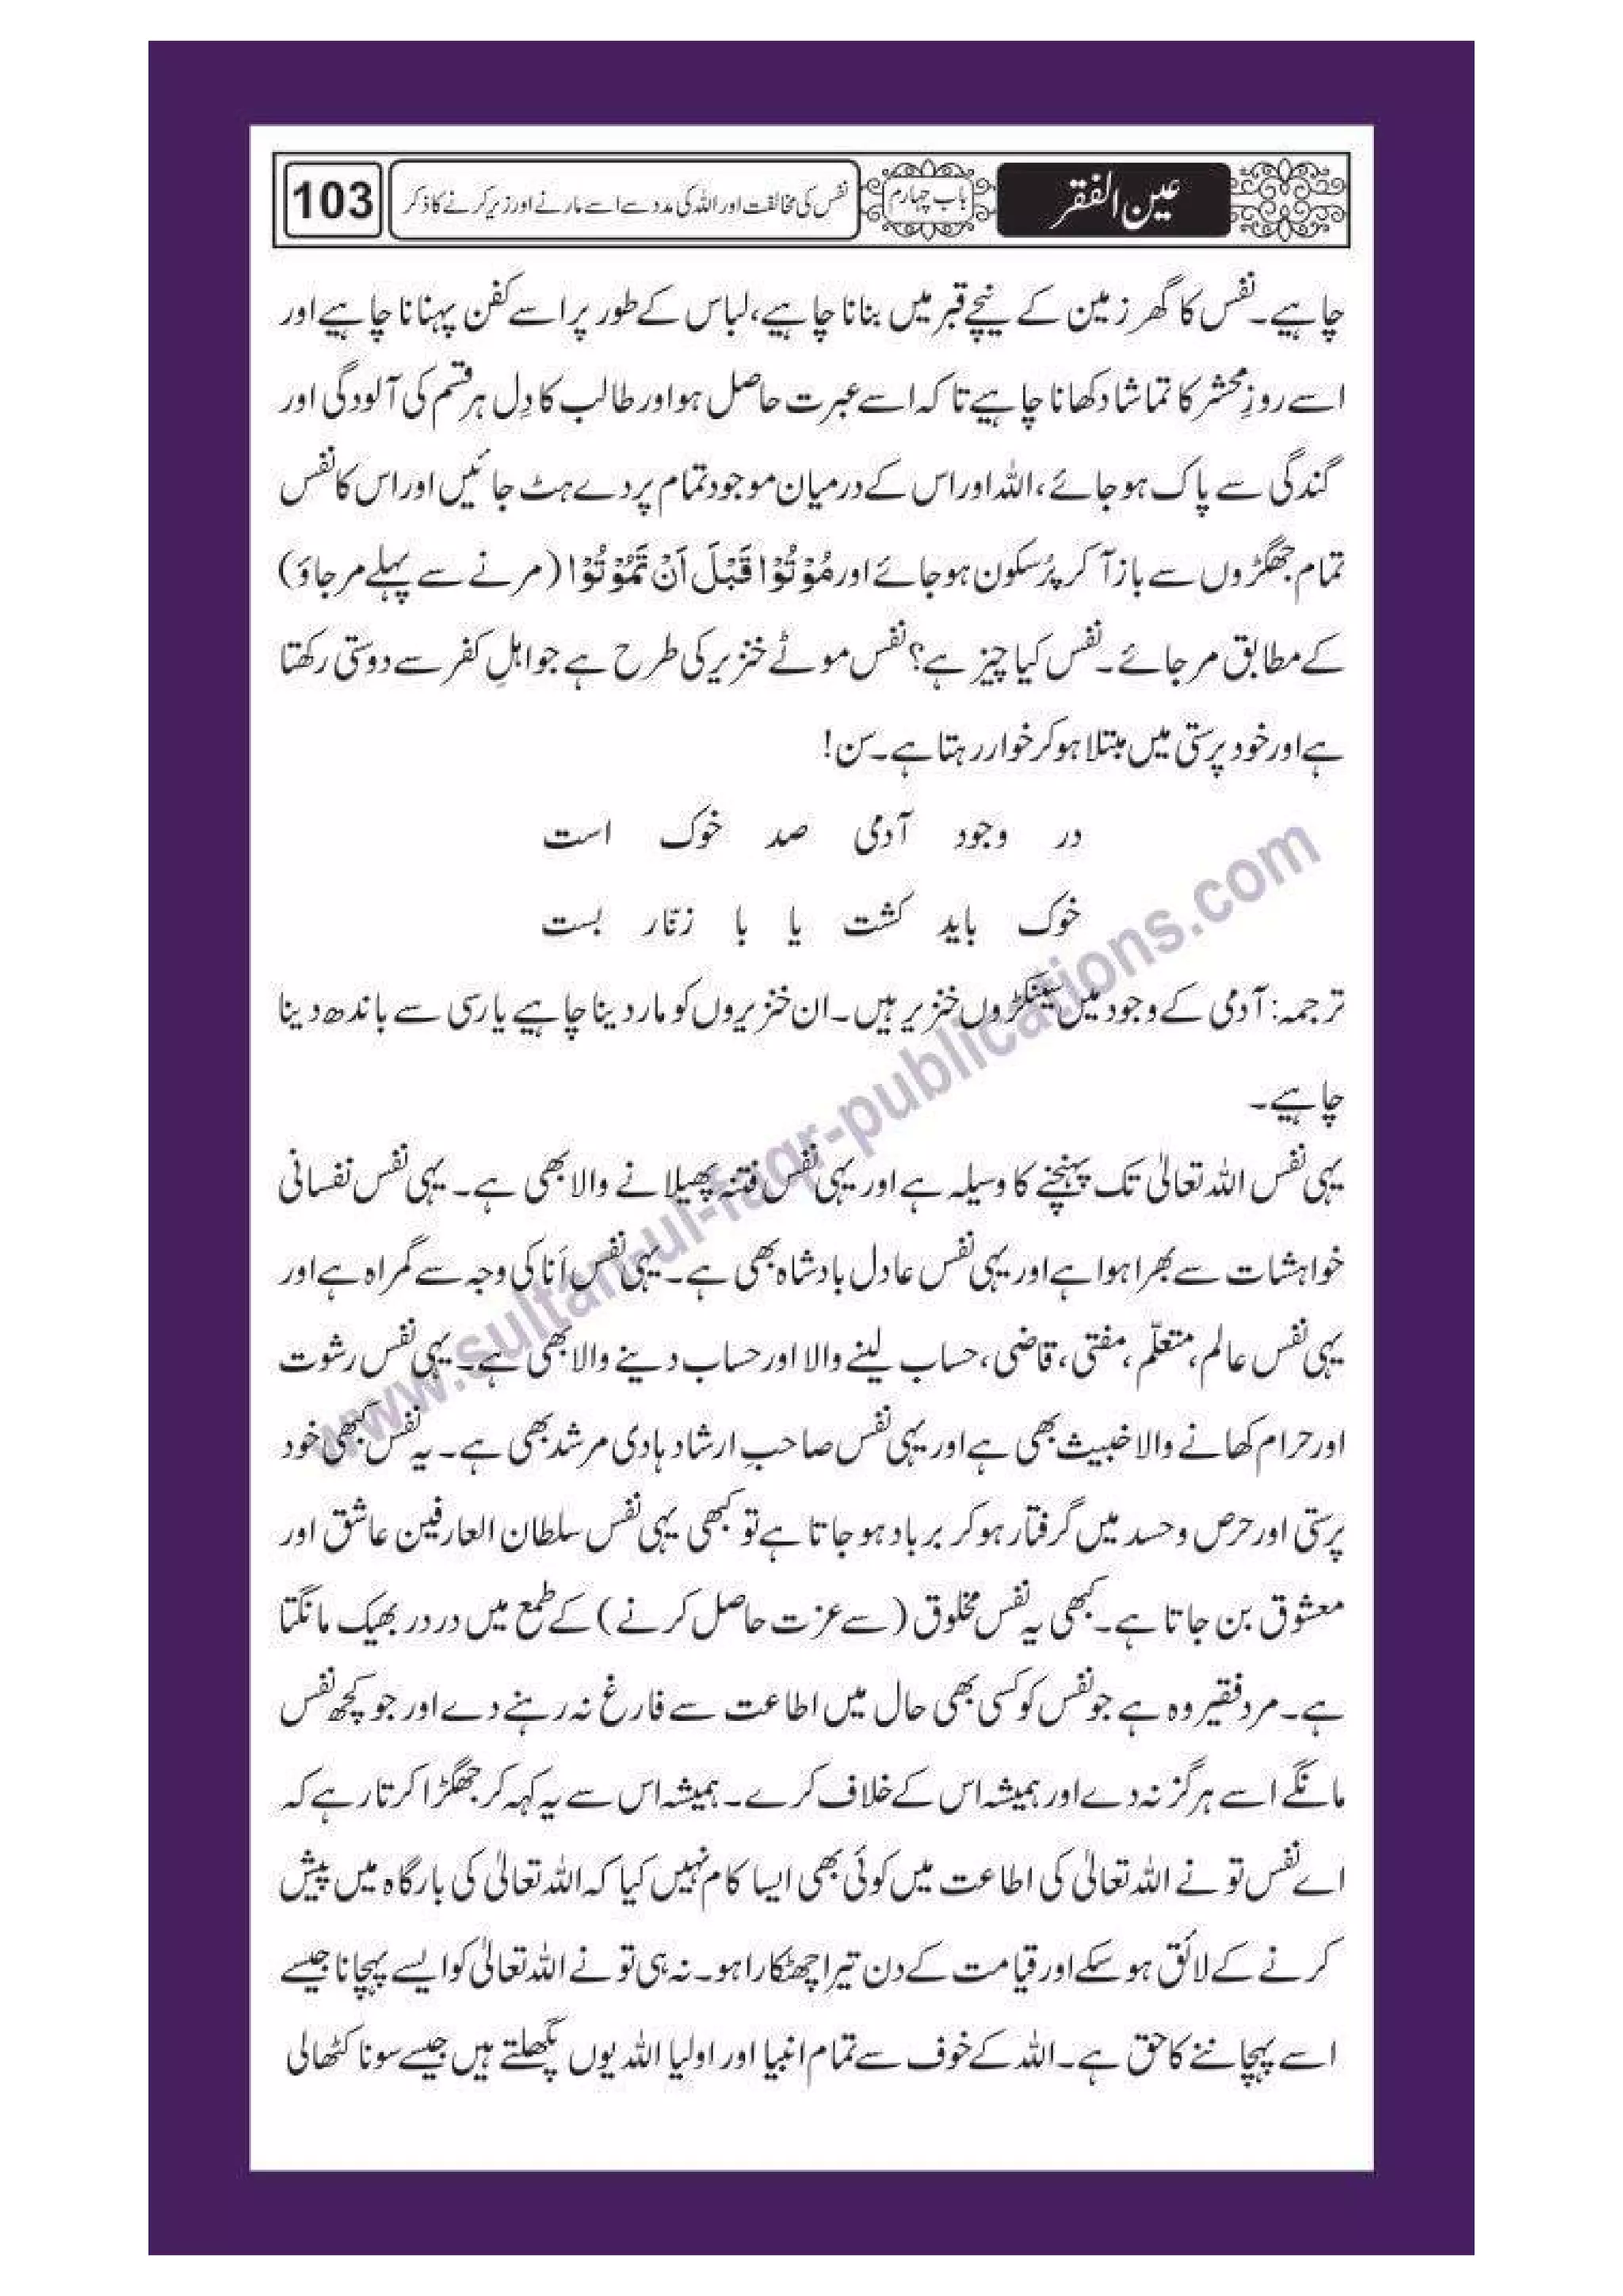 عین الفقر
باب چہارم
نفس کی مخالفت اور اللہ کی مدد سے اسے مارنے اور زیر کرنے کا ذکر
103
چاہیے۔ نفس کا گھر زمین کے نیچے قبر میں بنانا چاہیے، لباس کے طور پر اسے کفن پہنانا چاہیے اور
اسے روزِ محشر کا تماشا دکھانا چاہیے تا کہ اسے عبرت حاصل ہو اور طالب کا دِل ہر قسم کی آلودگی اور
گندگی سے پاک ہو جائے، اللہ اور اس کے درمیان موجود تمام پردے ہٹ جائیں اور اس کا نفس
تمام جھگڑوں سے باز آ کر پُرسکون ہو جائے اور مُوْتُوْا قَبْلَ اَنْ تَمُوْتُوْا (مرنے سے پہلے مر جاؤ)
کے مطابق مر جائے۔ نفس کیا چیز ہے؟ نفس موٹے خنزیر کی طرح ہے جو اہلِ کفر سے دوستی رکھتا
ہے اور خود پرستی میں مبتلا ہو کر خوار رہتا ہے۔ سن!
در وجود آدمی صد خوک است
خوک باید کشت یا با زنّار بست
ترجمہ: آدمی کے وجود میں سینکڑوں خنزیر ہیں۔ ان خنزیروں کو مار دینا چاہیے یا رسی سے باندھ دینا
چاہیے۔
یہی نفس اللہ تعالیٰ تک پہنچنے کا وسیلہ ہے اور یہی نفس فتنہ پھیلانے والا بھی ہے۔ یہی نفس نفسانی
خواہشات سے بھرا ہوا ہے اور یہی نفس عادل بادشاہ بھی ہے۔ یہی نفس اَنا کی وجہ سے گمراہ ہے اور
یہی نفس عالم، متعلّم، مفتی، قاضی، حساب لینے والا اور حساب دینے والا بھی ہے۔ یہی نفس رشوت
اور حرام کھانے والا خبیث بھی ہے اور یہی نفس صاحبِ ارشاد ہادی مرشد بھی ہے۔ یہ نفس کبھی خود
پرستی اور حرص و حسد میں گرفتار ہو کر برباد ہو جاتا ہے تو کبھی یہی نفس سلطان العارفین عاشق اور
معشوق بن جاتا ہے۔ کبھی یہ نفس مخلوق (سے عزت حاصل کرنے) کے طمع میں در در بھیک مانگتا
ہے۔ مرد فقیر وہ ہے جو نفس کو کسی بھی حال میں اطاعت سے فارغ نہ رہنے دے اور جو کچھ نفس
مانگے اسے ہرگز نہ دے اور ہمیشہ اس کے خلاف کرے۔ ہمیشہ اس سے یہ کہہ کر جھگڑا کرتا رہے کہ
اے نفس تو نے اللہ تعالیٰ کی اطاعت میں کوئی بھی ایسا کام نہیں کیا کہ اللہ تعالیٰ کی بارگاہ میں پیش
کرنے کے لائق ہو سکے اور قیامت کے دن تیرا چھٹکارا ہو۔ نہ ہی تو نے اللہ تعالیٰ کو ایسے پہچانا جیسے
اسے پہچاننے کا حق ہے۔ اللہ کے خوف سے تمام انبیا اور اولیا اللہ یوں پگھلتے ہیں جیسے سونا کٹھالی
www.sultan-ul-faqr-publications.com